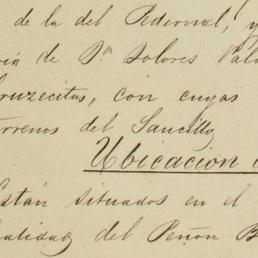 de la del Pedernal, y
ria de Dª Dolores Pala
cruzecitas, con cuyas
terrenos del Saucillo
Ubicacion d
Están situados en el
calidad del Peñon B